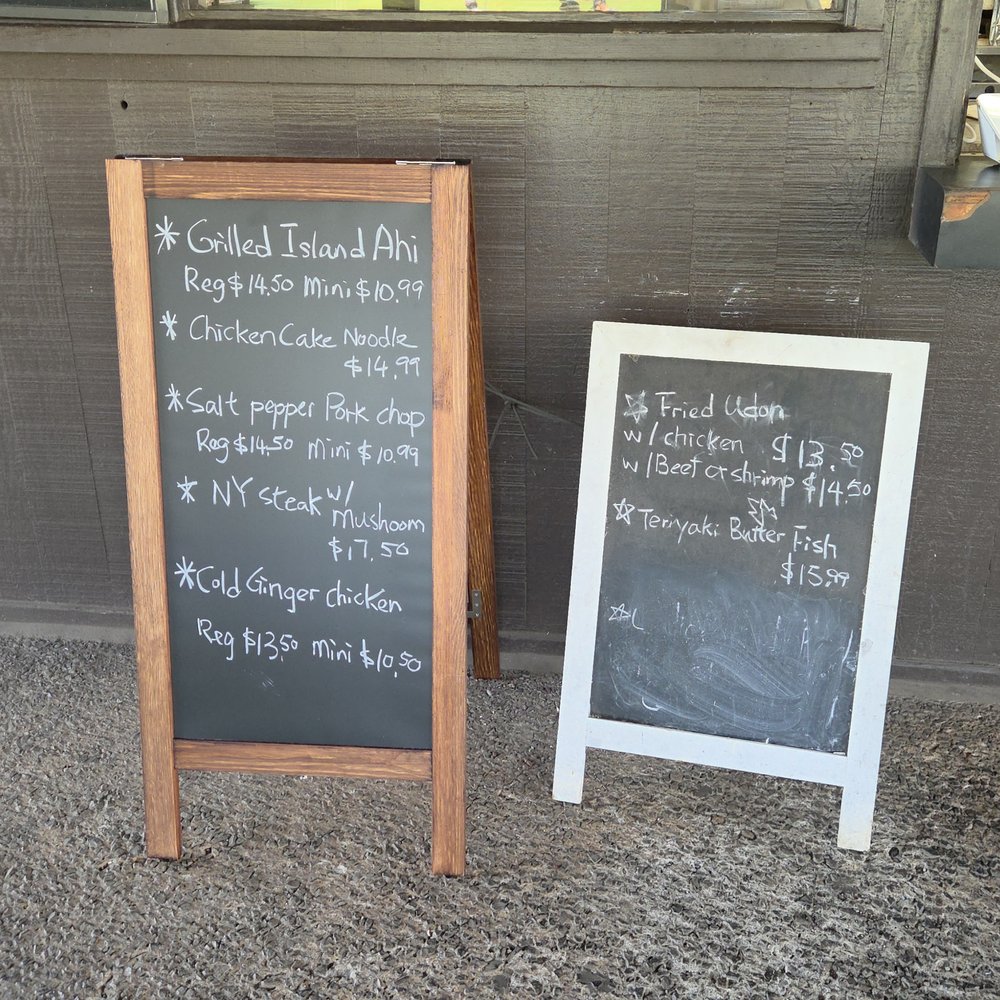 * Grilled Island Ahi
Reg $14.50 Mini $10.99
* Chicken Cake Noodle
$14.99
* Salt pepper Pork chop
Reg $14.50 Mini $10.99
* NY steak w/
Mushoom
$17.50
* Cold Ginger chicken
Reg $13.50 mini $10.50
☆ Fried Udon
w/ chicken $13.50
w/Beef or shrimp $14.50
☆ Teriyaki Butter Fish
$15.99
☆ L